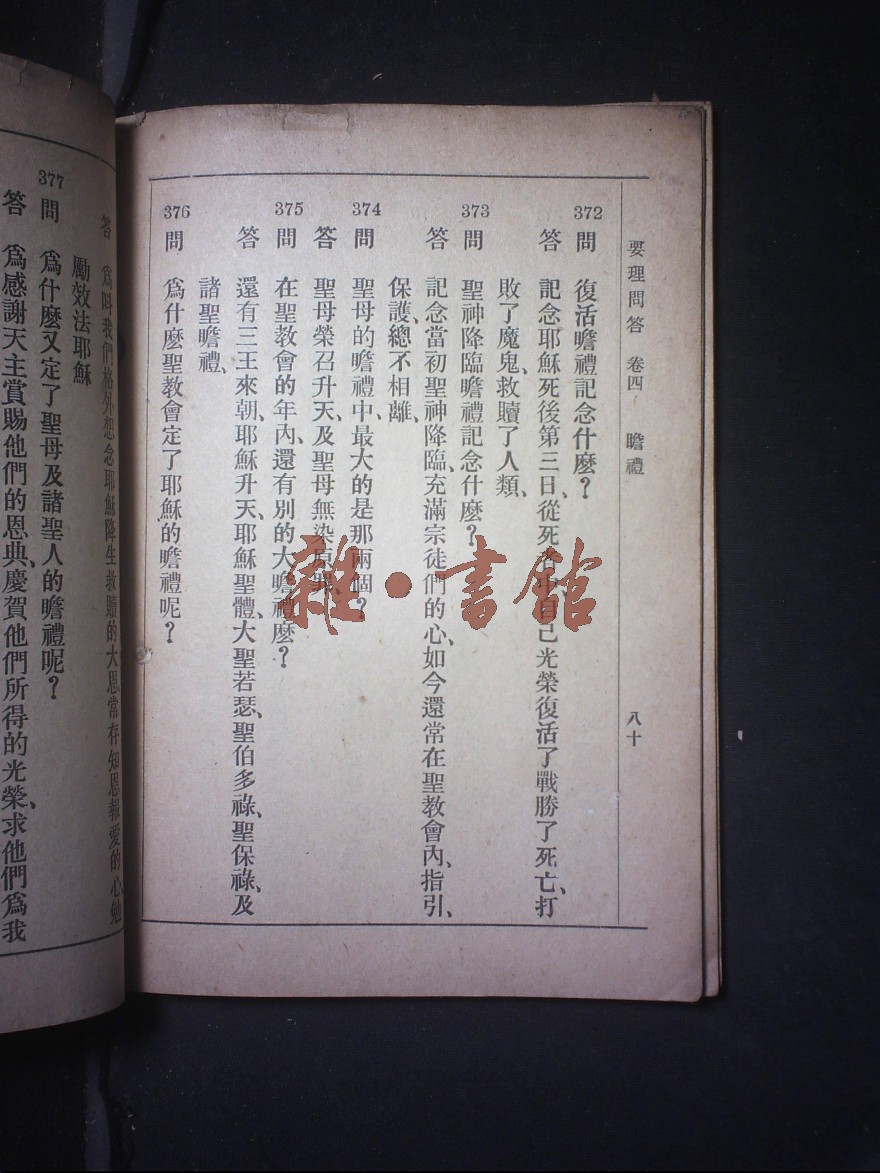 要理問答 卷四 瞻禮 八十
372 問 復活瞻禮記念什麽？
答 記念耶穌死後第三日、從死者中自己光榮復活了戰勝了死亡、打
敗了魔鬼、救贖了人類、
373 問 聖神降臨瞻禮記念什麽？
答 記念當初聖神降臨、充滿宗徒們的心、如今還常在聖教會內、指引、
保護、總不相離、
374 問 聖母的瞻禮中、最大的是那兩個？
答 聖母榮召升天、及聖母無染原罪、
375 問 在聖教會的年內、還有別的大瞻禮麽？
答 還有三王來朝、耶穌升天、耶穌聖體、大聖若瑟、聖伯多祿、聖保祿、及
諸聖瞻禮、
376 問 爲什麽聖教會定了耶穌的瞻禮呢？
答 爲叫我們格外想念耶穌降生救贖的大恩常存知恩報愛的心、勉
勵效法耶穌
377 問 爲什麽又定了聖母及諸聖人的瞻禮呢？
答 爲感謝天主賞賜他們的恩典、慶賀他們所得的光榮、求他們爲我
雜·書館